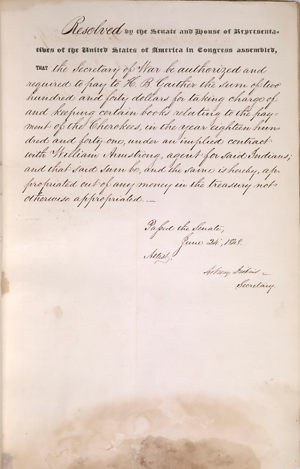 Resolved by the Senate and House of Representa-
tives of the United States of America in Congress assembled,
THAT the Secretary of War be authorized and
required to pay to H. B. Gaither the sum of two
hundred and forty dollars for taking charge of
and keeping certain books relating to the pay-
ment of the Cherokees, in the year eighteen hun
dred and forty one, under an implied contract
with William Armstrong, agent for said Indians;
and that said sum be, and the same is hereby, ap
propriated out of any money in the treasury not
otherwise appropriated.—
Passed the Senate,
June 24, 1848.
Attest,
Asbury Dickins
Secretary